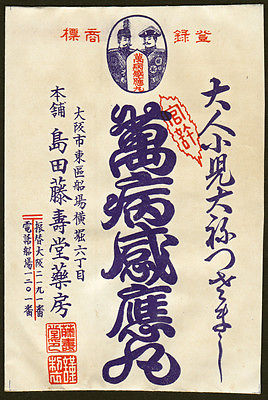 登録商標
萬病感應丸
大人小児大祢つさまし
官許
萬病感應丸
大阪市東區船場横堀六丁目
本舗 島田藤壽堂藥房
振替大阪二一九一番
電話船場一二〇一番